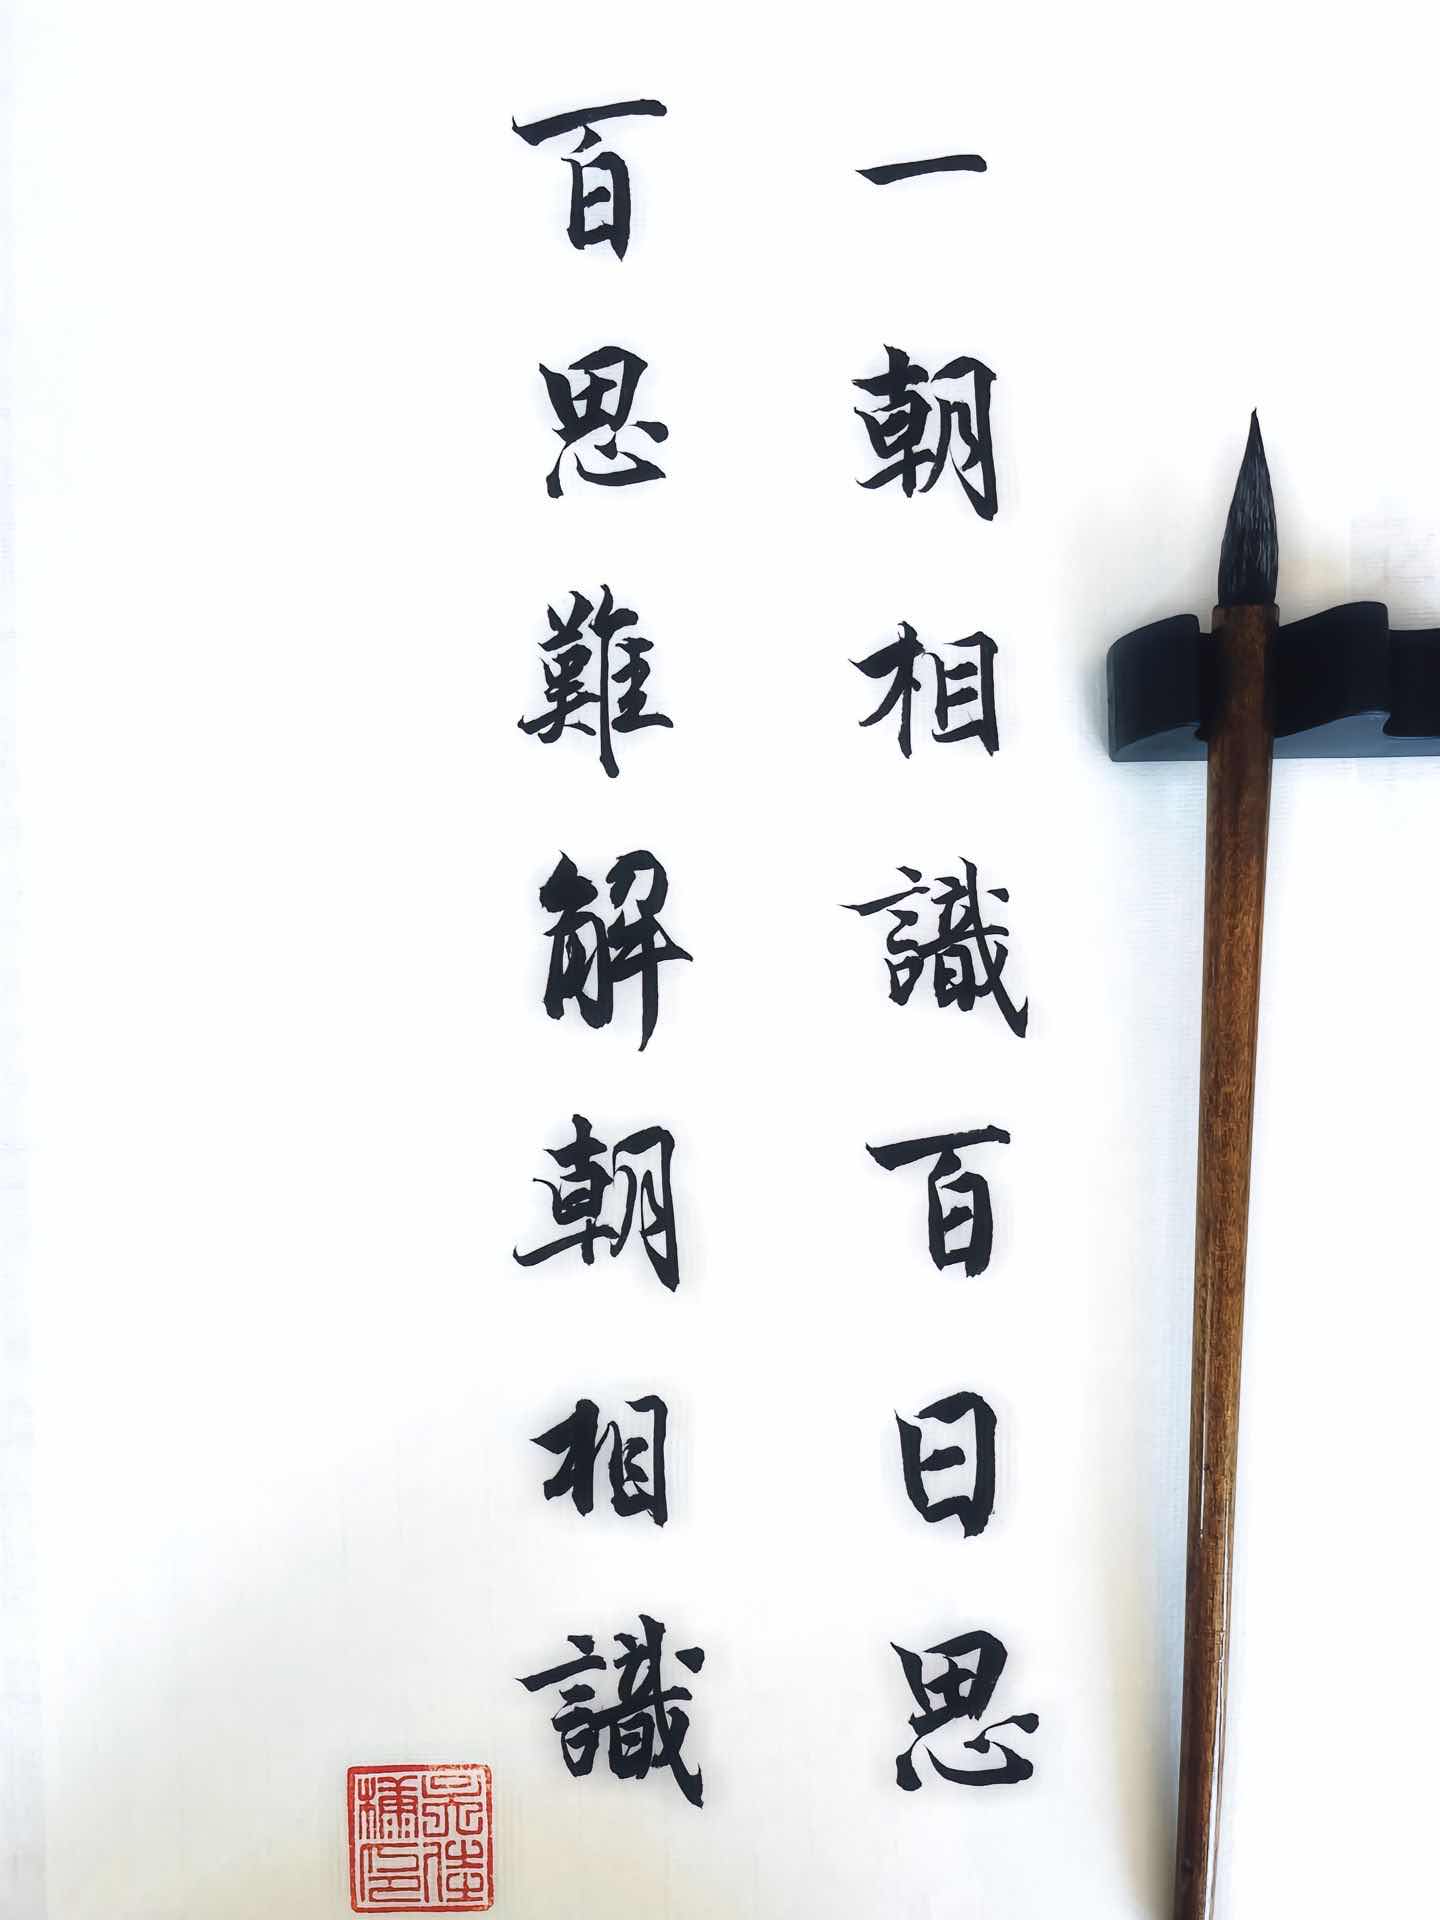 一朝相識百日思
百思難解朝相識